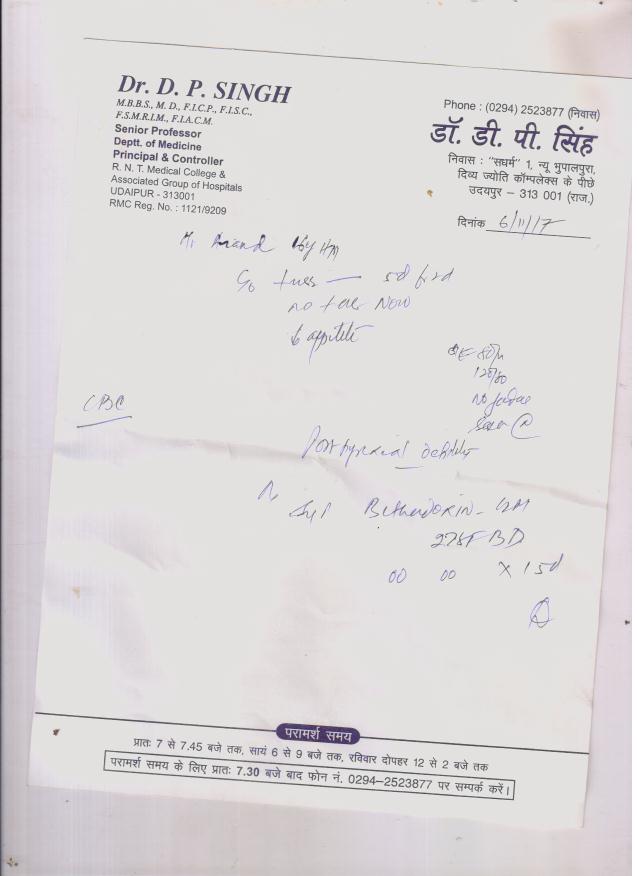 Dr. D. P. SINGH
M.B.B.S., M. D., F.I.C.P., F.I.S.C.,
F.S.M.R.I.M., F.I.A.C.M.
Senior Professor
Deptt. of Medicine
Principal & Controller
R. N. T. Medical College &
Associated Group of Hospitals
UDAIPUR - 313001
RMC Reg. No. : 1121/9209
Phone : (0294) 2523877 (निवास)
डॉ. डी. पी. सिंह
निवास : "सघर्म" 1, न्यू भुपालपुरा,
दिव्य ज्योति कॉम्पलेक्स के पीछे
उदयपुर – 313 001 (राज.)
दिनांक 6/11/17
Mr Anand
no fever Now
↓ appitite
120/80
CBC
Post pyrexial debility
Syp
BD
00 00 X 15d
परामर्श समय
प्रातः 7 से 7.45 बजे तक, सायं 6 से 9 बजे तक, रविवार दोपहर 12 से 2 बजे तक
परामर्श समय के लिए प्रातः 7.30 बजे बाद फोन नं. 0294–2523877 पर सम्पर्क करें।